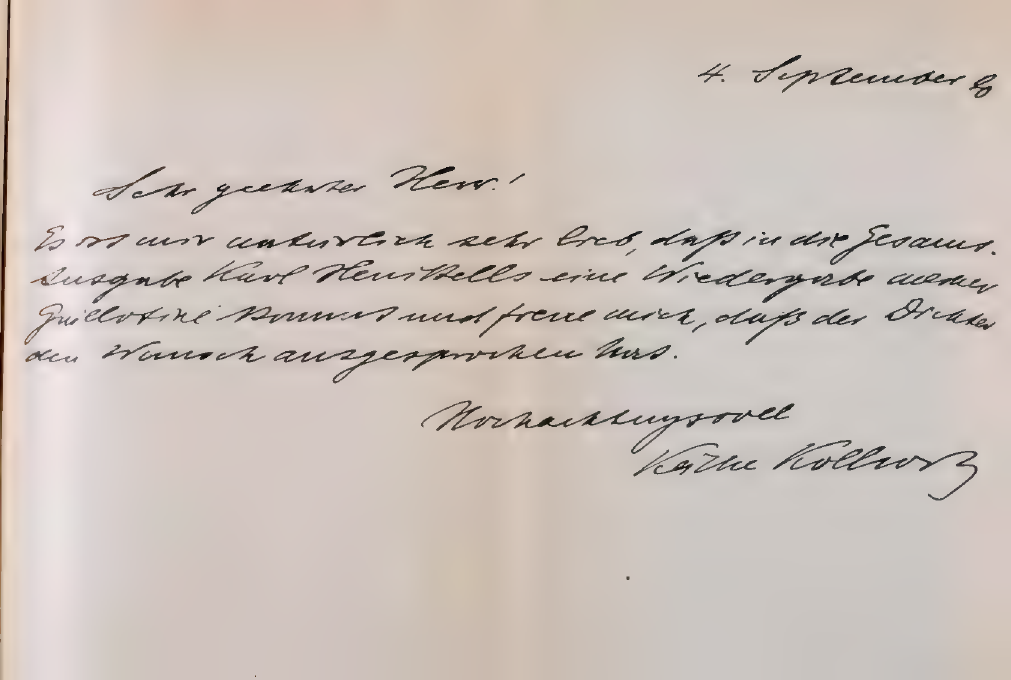 4. September 20
Sehr geehrter Herr!
Es ist mir natürlich sehr lieb, daß in die Gesamt-
Ausgabe Karl Henckells eine Wiedergabe meiner
Guillotine kommt und freue mich, daß der Dichter
den Wunsch ausgesprochen hat.
Hochachtungsvoll
Käthe Kollwitz